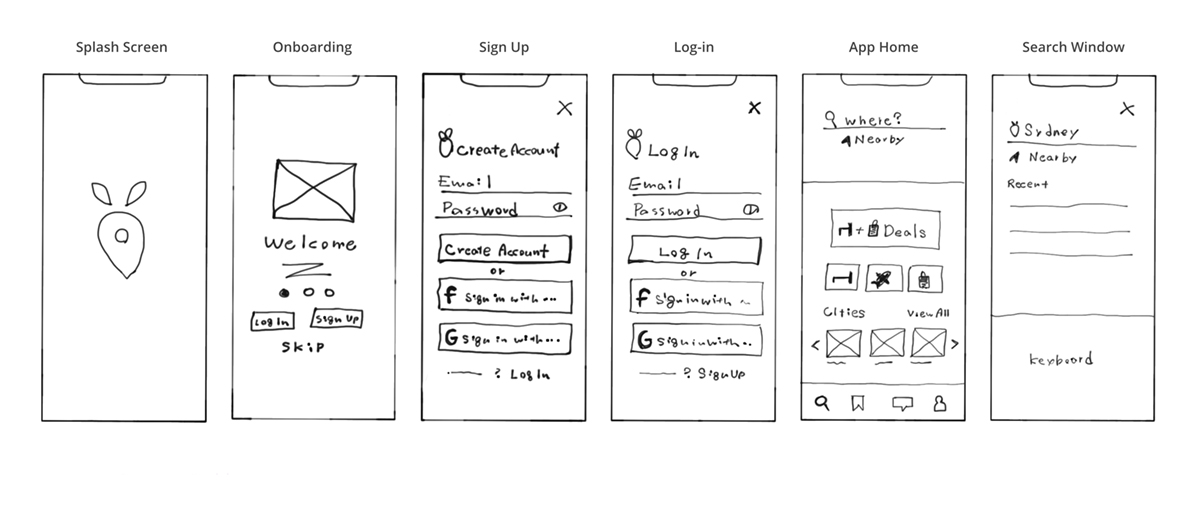 Splash Screen
Onboarding
Welcome
Log In
Sign Up
Skip
Sign Up
X
Create Account
Email
Password
Create Account
or
f Sign in with ...
G Sign in with...
? Log In
Log-in
X
Log In
Email
Password
Log In
or
f Sign in with ..
G Sign in with..
? Sign Up
App Home
where?
Nearby
+ Deals
Cities
View All
< >
Search Window
X
Sydney
Nearby
Recent
keyboard